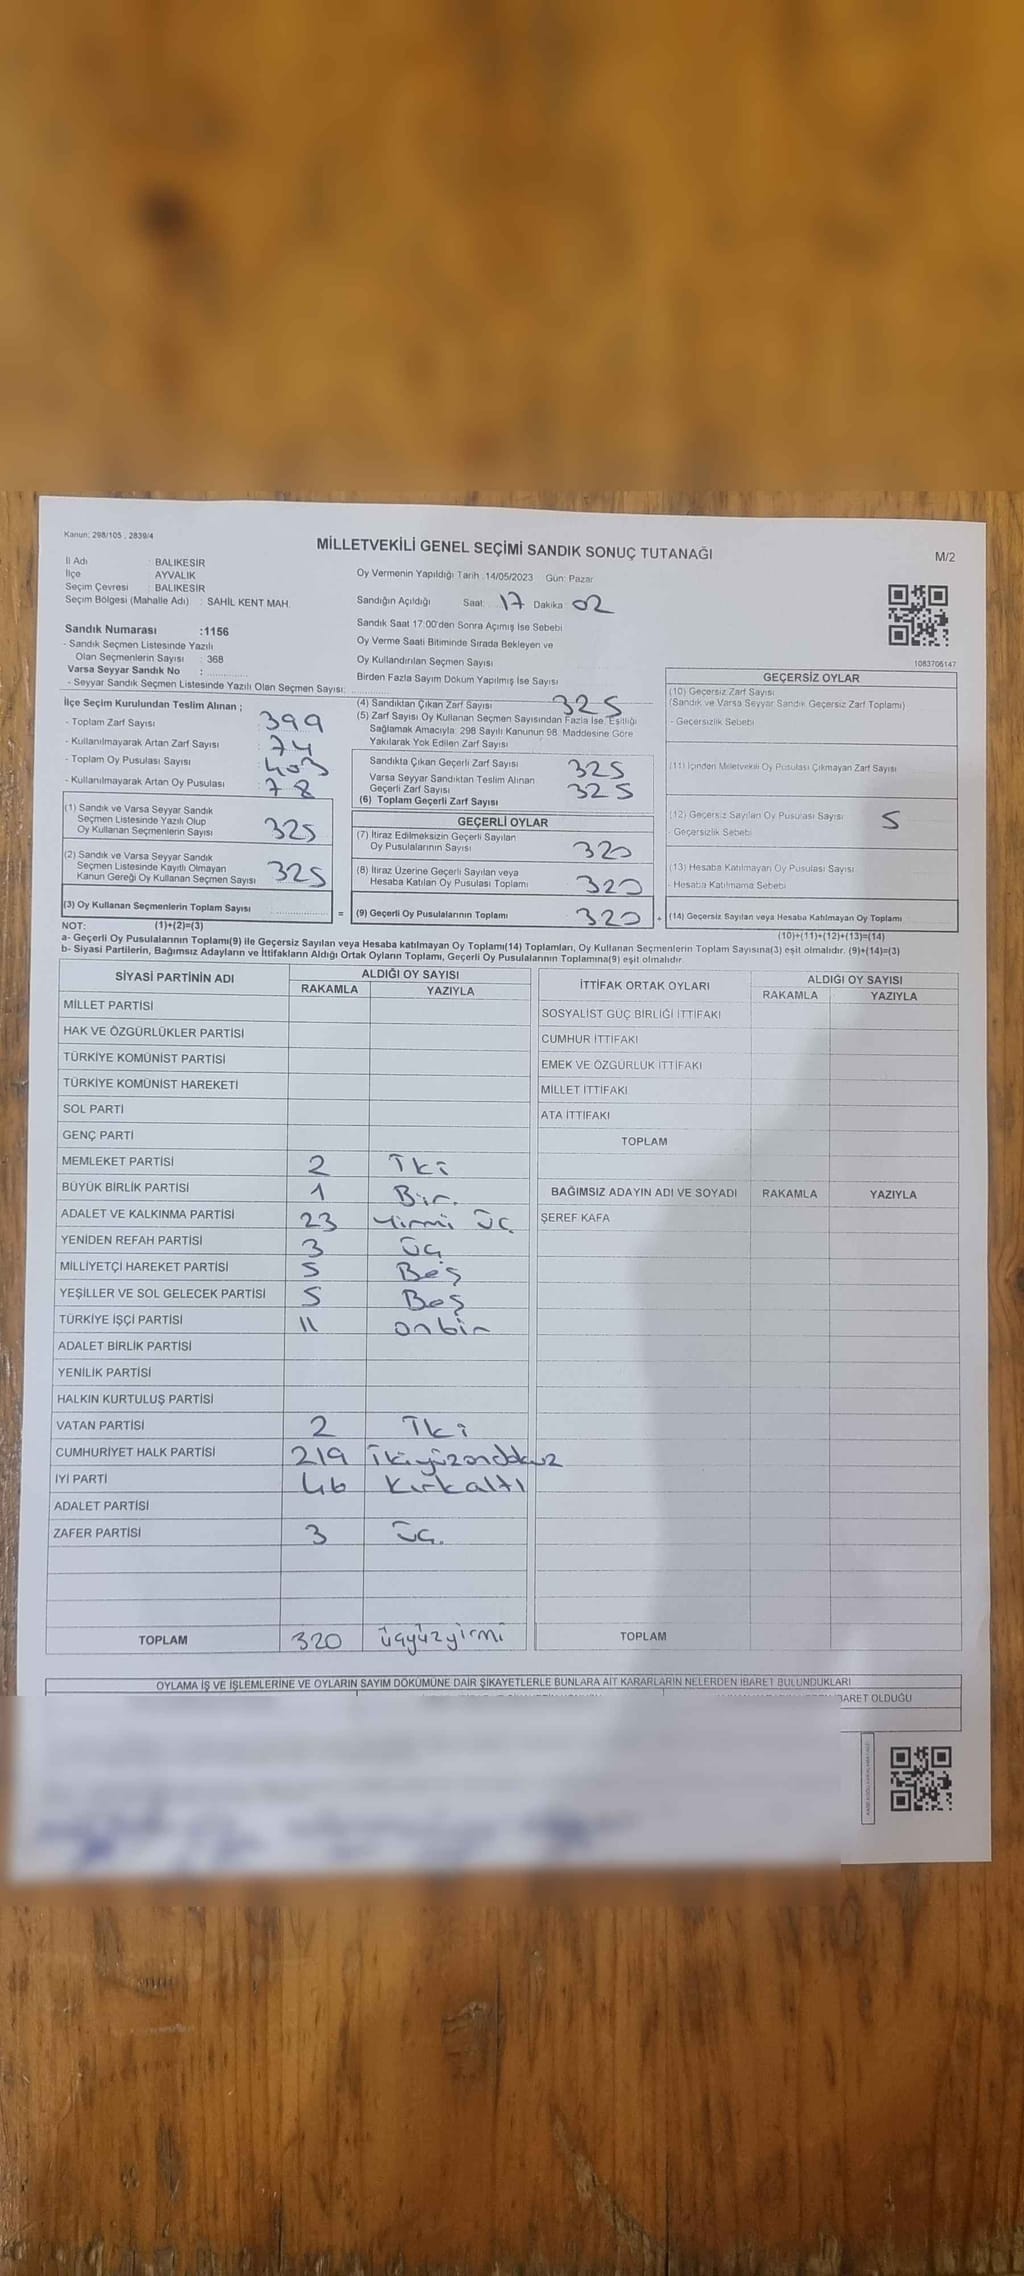 Kanun: 298/105 , 2839/4
MİLLETVEKİLİ GENEL SEÇİMİ SANDIK SONUÇ TUTANAĞI
M/2
İl Adı : BALIKESİR
İlçe : AYVALIK
Seçim Çevresi : BALIKESİR
Seçim Bölgesi (Mahalle Adı) : SAHİL KENT MAH.
Oy Vermenin Yapıldığı Tarih :14/05/2023 Gün: Pazar
Sandığın Açıldığı Saat: 17 Dakika 02
Sandık Saat 17:00'den Sonra Açımış İse Sebebi
Oy Verme Saati Bitiminde Sırada Bekleyen ve
Oy Kullandırılan Seçmen Sayısı
Birden Fazla Sayım Döküm Yapılmış İse Sayısı
1083706147
Sandık Numarası :1156
- Sandık Seçmen Listesinde Yazılı
Olan Seçmenlerin Sayısı : 368
Varsa Seyyar Sandık No :
- Seyyar Sandık Seçmen Listesinde Yazılı Olan Seçmen Sayısı:
İlçe Seçim Kurulundan Teslim Alınan ;
- Toplam Zarf Sayısı : 399
- Kullanılmayarak Artan Zarf Sayısı : 74
- Toplam Oy Pusulası Sayısı : 403
- Kullanılmayarak Artan Oy Pusulası : 78
(1) Sandık ve Varsa Seyyar Sandık
Seçmen Listesinde Yazılı Olup
Oy Kullanan Seçmenlerin Sayısı 325
(2) Sandık ve Varsa Seyyar Sandık
Seçmen Listesinde Kayıtlı Olmayan
Kanun Gereği Oy Kullanan Seçmen Sayısı 325
(3) Oy Kullanan Seçmenlerin Toplam Sayısı
(1)+(2)=(3)
(4) Sandıktan Çıkan Zarf Sayısı 325
(5) Zarf Sayısı Oy Kullanan Seçmen Sayısından Fazla İse, Eşitliği
Sağlamak Amacıyla: 298 Sayılı Kanunun 98. Maddesine Göre
Yakılarak Yok Edilen Zarf Sayısı
Sandıkta Çıkan Geçerli Zarf Sayısı 325
Varsa Seyyar Sandıktan Teslim Alınan
Geçerli Zarf Sayısı 325
(6) Toplam Geçerli Zarf Sayısı
GEÇERLİ OYLAR
(7) İtiraz Edilmeksizin Geçerli Sayılan
Oy Pusulalarının Sayısı 320
(8) İtiraz Üzerine Geçerli Sayılan veya
Hesaba Katılan Oy Pusulası Toplamı 320
= (9) Geçerli Oy Pusulalarının Toplamı 320 +
GEÇERSİZ OYLAR
(10) Geçersiz Zarf Sayısı
(Sandık ve Varsa Seyyar Sandık Geçersiz Zarf Toplamı)
- Geçersizlik Sebebi
(11) İçinden Milletvekili Oy Pusulası Çıkmayan Zarf Sayısı
(12) Geçersiz Sayılan Oy Pusulası Sayısı 5
- Geçersizlik Sebebi
(13) Hesaba Katılmayan Oy Pusulası Sayısı
- Hesaba Katılmama Sebebi
(14) Geçersiz Sayılan veya Hesaba Katılmayan Oy Toplamı
(10)+(11)+(12)+(13)=(14)
NOT:
a- Geçerli Oy Pusulalarının Toplamı(9) ile Geçersiz Sayılan veya Hesaba katılmayan Oy Toplamı(14) Toplamları, Oy Kullanan Seçmenlerin Toplam Sayısına(3) eşit olmalıdır. (9)+(14)=(3)
b- Siyasi Partilerin, Bağımsız Adayların ve İttifakların Aldığı Ortak Oyların Toplamı, Geçerli Oy Pusulalarının Toplamına(9) eşit olmalıdır.
SİYASİ PARTİNİN ADI ALDIĞI OY SAYISI
RAKAMLA YAZIYLA
MİLLET PARTİSİ
HAK VE ÖZGÜRLÜKLER PARTİSİ
TÜRKİYE KOMÜNİST PARTİSİ
TÜRKİYE KOMÜNİST HAREKETİ
SOL PARTİ
GENÇ PARTİ
MEMLEKET PARTİSİ 2 İki
BÜYÜK BİRLİK PARTİSİ 1 Bir.
ADALET VE KALKINMA PARTİSİ 23 Yirmi Üç
YENİDEN REFAH PARTİSİ 3 Üç
MİLLİYETÇİ HAREKET PARTİSİ 5 Beş
YEŞİLLER VE SOL GELECEK PARTİSİ 5 Beş
TÜRKİYE İŞÇİ PARTİSİ 11 onbir
ADALET BİRLİK PARTİSİ
YENİLİK PARTİSİ
HALKIN KURTULUŞ PARTİSİ
VATAN PARTİSİ 2 İki
CUMHURİYET HALK PARTİSİ 219 İkiyüzondokuz
İYİ PARTİ 46 Kırkaltı
ADALET PARTİSİ
ZAFER PARTİSİ 3 Üç.
TOPLAM 320 üçyüzyirmi
İTTİFAK ORTAK OYLARI ALDIĞI OY SAYISI
RAKAMLA YAZIYLA
SOSYALİST GÜÇ BİRLİĞİ İTTİFAKI
CUMHUR İTTİFAKI
EMEK VE ÖZGÜRLÜK İTTİFAKI
MİLLET İTTİFAKI
ATA İTTİFAKI
TOPLAM
BAĞIMSIZ ADAYIN ADI VE SOYADI RAKAMLA YAZIYLA
ŞEREF KAFA
TOPLAM
OYLAMA İŞ VE İŞLEMLERİNE VE OYLARIN SAYIM DÖKÜMÜNE DAİR ŞİKAYETLERLE BUNLARA AİT KARARLARIN NELERDEN İBARET BULUNDUKLARI
İBARET OLDUĞU